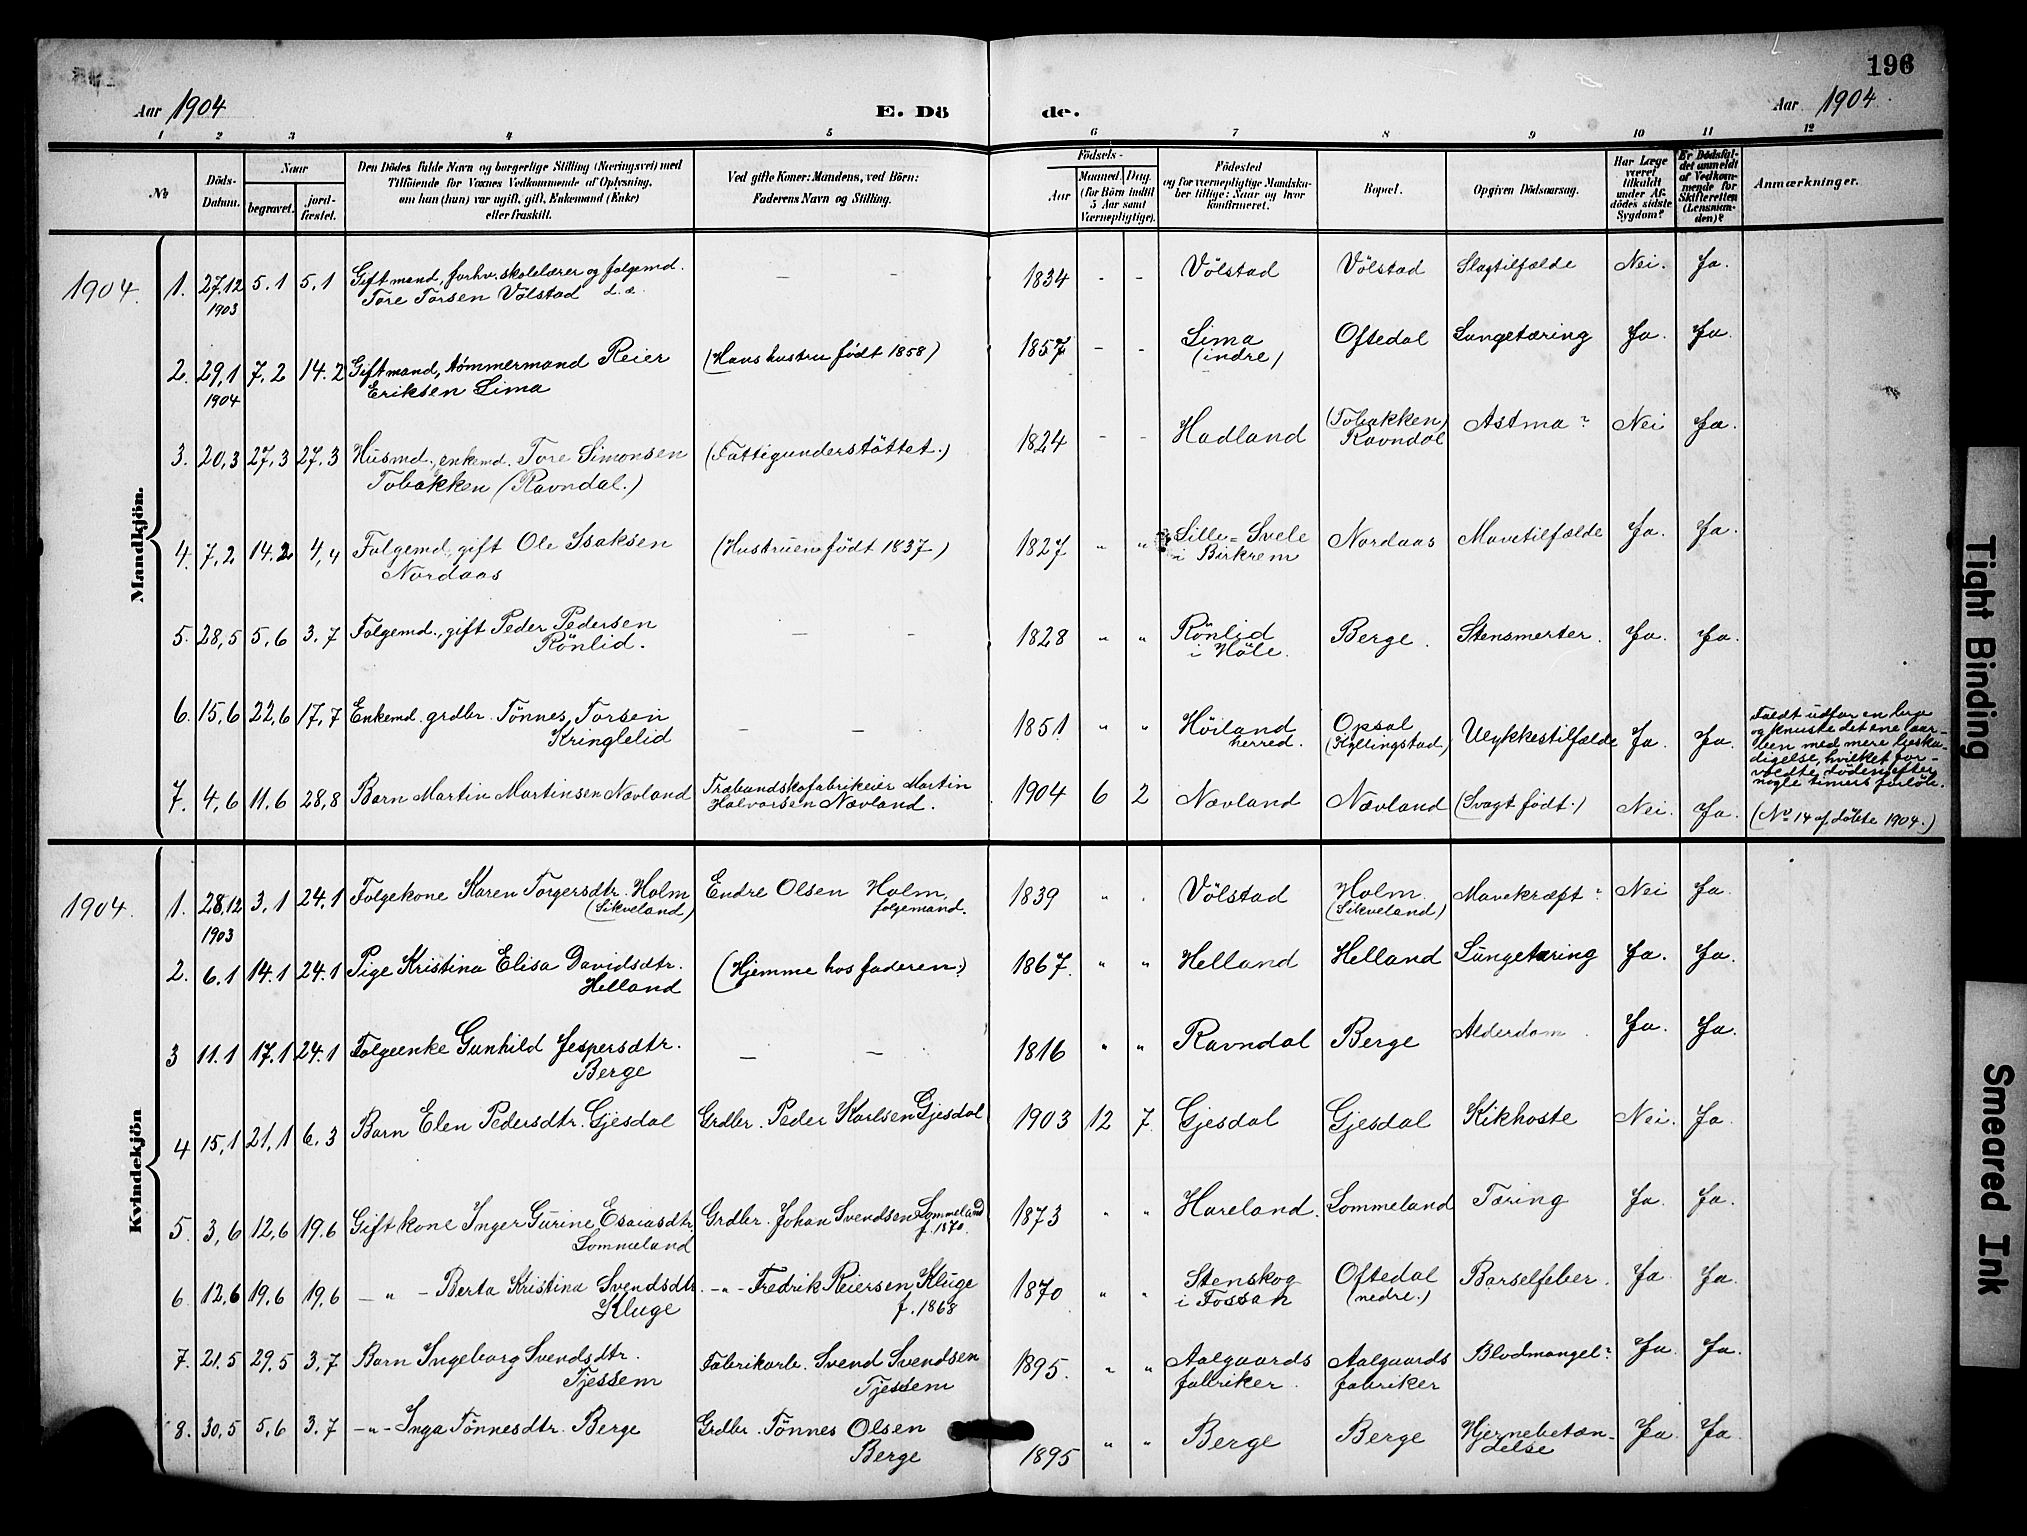 196
Aar 1904
E. Dö
de.
Aar 1904.
1 2 3 4 5 6 7 8 9 10 11 12
No
Döds-Datum.
Naar
begravet.
jord-fæstet.
Den Dödes fulde Navn og borgerlige Stilling (Næringsvei) med
Tilföiende for Voxnes Vedkommende af Oplysning,
om han (hun) var ugift, gift, Enkemand (Enke)
eller fraskilt.
Ved gifte Koner: Mandens, ved Börn:
Faderens Navn og Stilling.
Födsels-
Aar
Maaned. Dag.
(for Börn indtil
5 Aar samt
Værnepligtige).
Födested
og for værnepligtige Mandska-
ber tillige: Naar og hvor
konfirmeret.
Bopæl.
Opgiven Dödsaarsag.
Har Læge
været
tilkaldt
under Af-
dödes sidste
Sygdom?
Er Dödsfal-
det anmeldt
af Vedkom-
mende for
Skifteretten
(Lensman-
den)?
Anmærkninger.
Mandkjön.
1904. 1. 27.12 1903 5.1 5.1 Gift mand, forhv. skolelærer og folgemd.
Tore Torsen Völstad d. æ. — — 1834 - - Völstad Völstad Slagtilfælde Nei. Ja.
2. 29,1 1904 7.2 14.2 Gift mand, tømmermand Reier
Eriksen Lima (Hans hustru født 1858) 1857 - - Lima
(indre) Oftedal Lungetæring Ja. Ja.
3. 20,3 27,3 27.3 Husmd., enkemd. Tore Simonsen
Tobakken (Ravndal.) (Fattigunderstøttet.) 1824 - - Hadland (Tobakken)
Ravndal Astma? Nei Ja.
4. 7,2 14.2 4,4 Folgemd, gift Ole Isaksen
Nordaas (Hustruen født 1837) 1827 " " Lille-Svele
i Birkrem Nordaas Mavetilfælde Ja. Ja.
5. 28,5 5,6 3.7 Folgemd., gift Peder Pedersen
Rönlid. — — 1828 " " Rönlid
i Höle. Berge. Stensmerter. Ja. Ja.
6. 15,6 22,6 17,7 Enkemd. grdbr. Tönnes Torsen
Kringlelid — — 1851 " " Höiland
herred. Opsal
(Kyllingstad) Ulykkestilfælde Ja. Ja. Faldt udfor en
og knuste det ene laar-
ben med mere beska-
digelse, hvilket for-
voldte döden efter
nogle timers forlöb.
7. 4,6 11.6 28,8 Barn Martin Martinsen Nævland Træbundskofabrikeier Martin
Halvorsen Nævland. 1904 6 2 Nævland Nævland (Svagt født.) Nei. Ja. (No 14 af döbte 1904.)
Kvindekjön
1904. 1. 28,12 1903 3,1 24,1 Folgekone Karen Torgersdtr. Holm
(Sikveland) Endre Olsen Holm,
folgemand. 1839 " . Völstad Holm
(Sikveland) Mavekræft? Nei Ja.
2. 6.1 14.1 24.1 Pige Kristina Elisa Davidsdtr.
Helland (Hjemme hos faderen.) 1867. " " Helland Helland Lungetæring Ja. Ja.
3 11.1 17.1 24.1 Folgeenke Gunhild Jespersdtr.
Berge — — 1816 " " Ravndal Berge Alderdom. Ja. Ja.
4 15,1 21,1 6.3 Barn Elen Pedersdtr. Gjesdal Grdbr. Peder Karlsen Gjesdal 1903 12 7 Gjesdal Gjesdal Kikhoste Nei. Ja.
5. 3,6 12,6 19.6 Gift kone Inger Gurine Esaiasdtr.
Lommeland Grdbr. Johan Svendsen Lommeland
f. 1870. 1873 " " Hareland. Lommeland Tæring Ja. Ja.
6 12,6 19,6 19,6 — " — Berta Kristina Svendsdtr.
Kluge — " — Fredrik Reiersen Kluge
f. 1868 1870 " " Stenskog
i Fossan Oftedal
(nedre.) Barselfeber. Ja. Ja.
7. 21.5 29.5 3,7 Barn Ingeborg Svendsdtr.
Tjessem Fabrikarb. Svend Svendsen
Tjessem 1895. " " Aalgaards
fabriker. Aalgaards
fabriker Blodmangel? Ja. Ja.
8. 30,5 5,6 3.7 — " — Inga Tönnesdtr. Berge Grdbr. Tönnes Olsen
Berge 1895 " " Berge Berge Hjernebetæn-
delse Ja. Ja.
Tight Binding
Smeared Ink